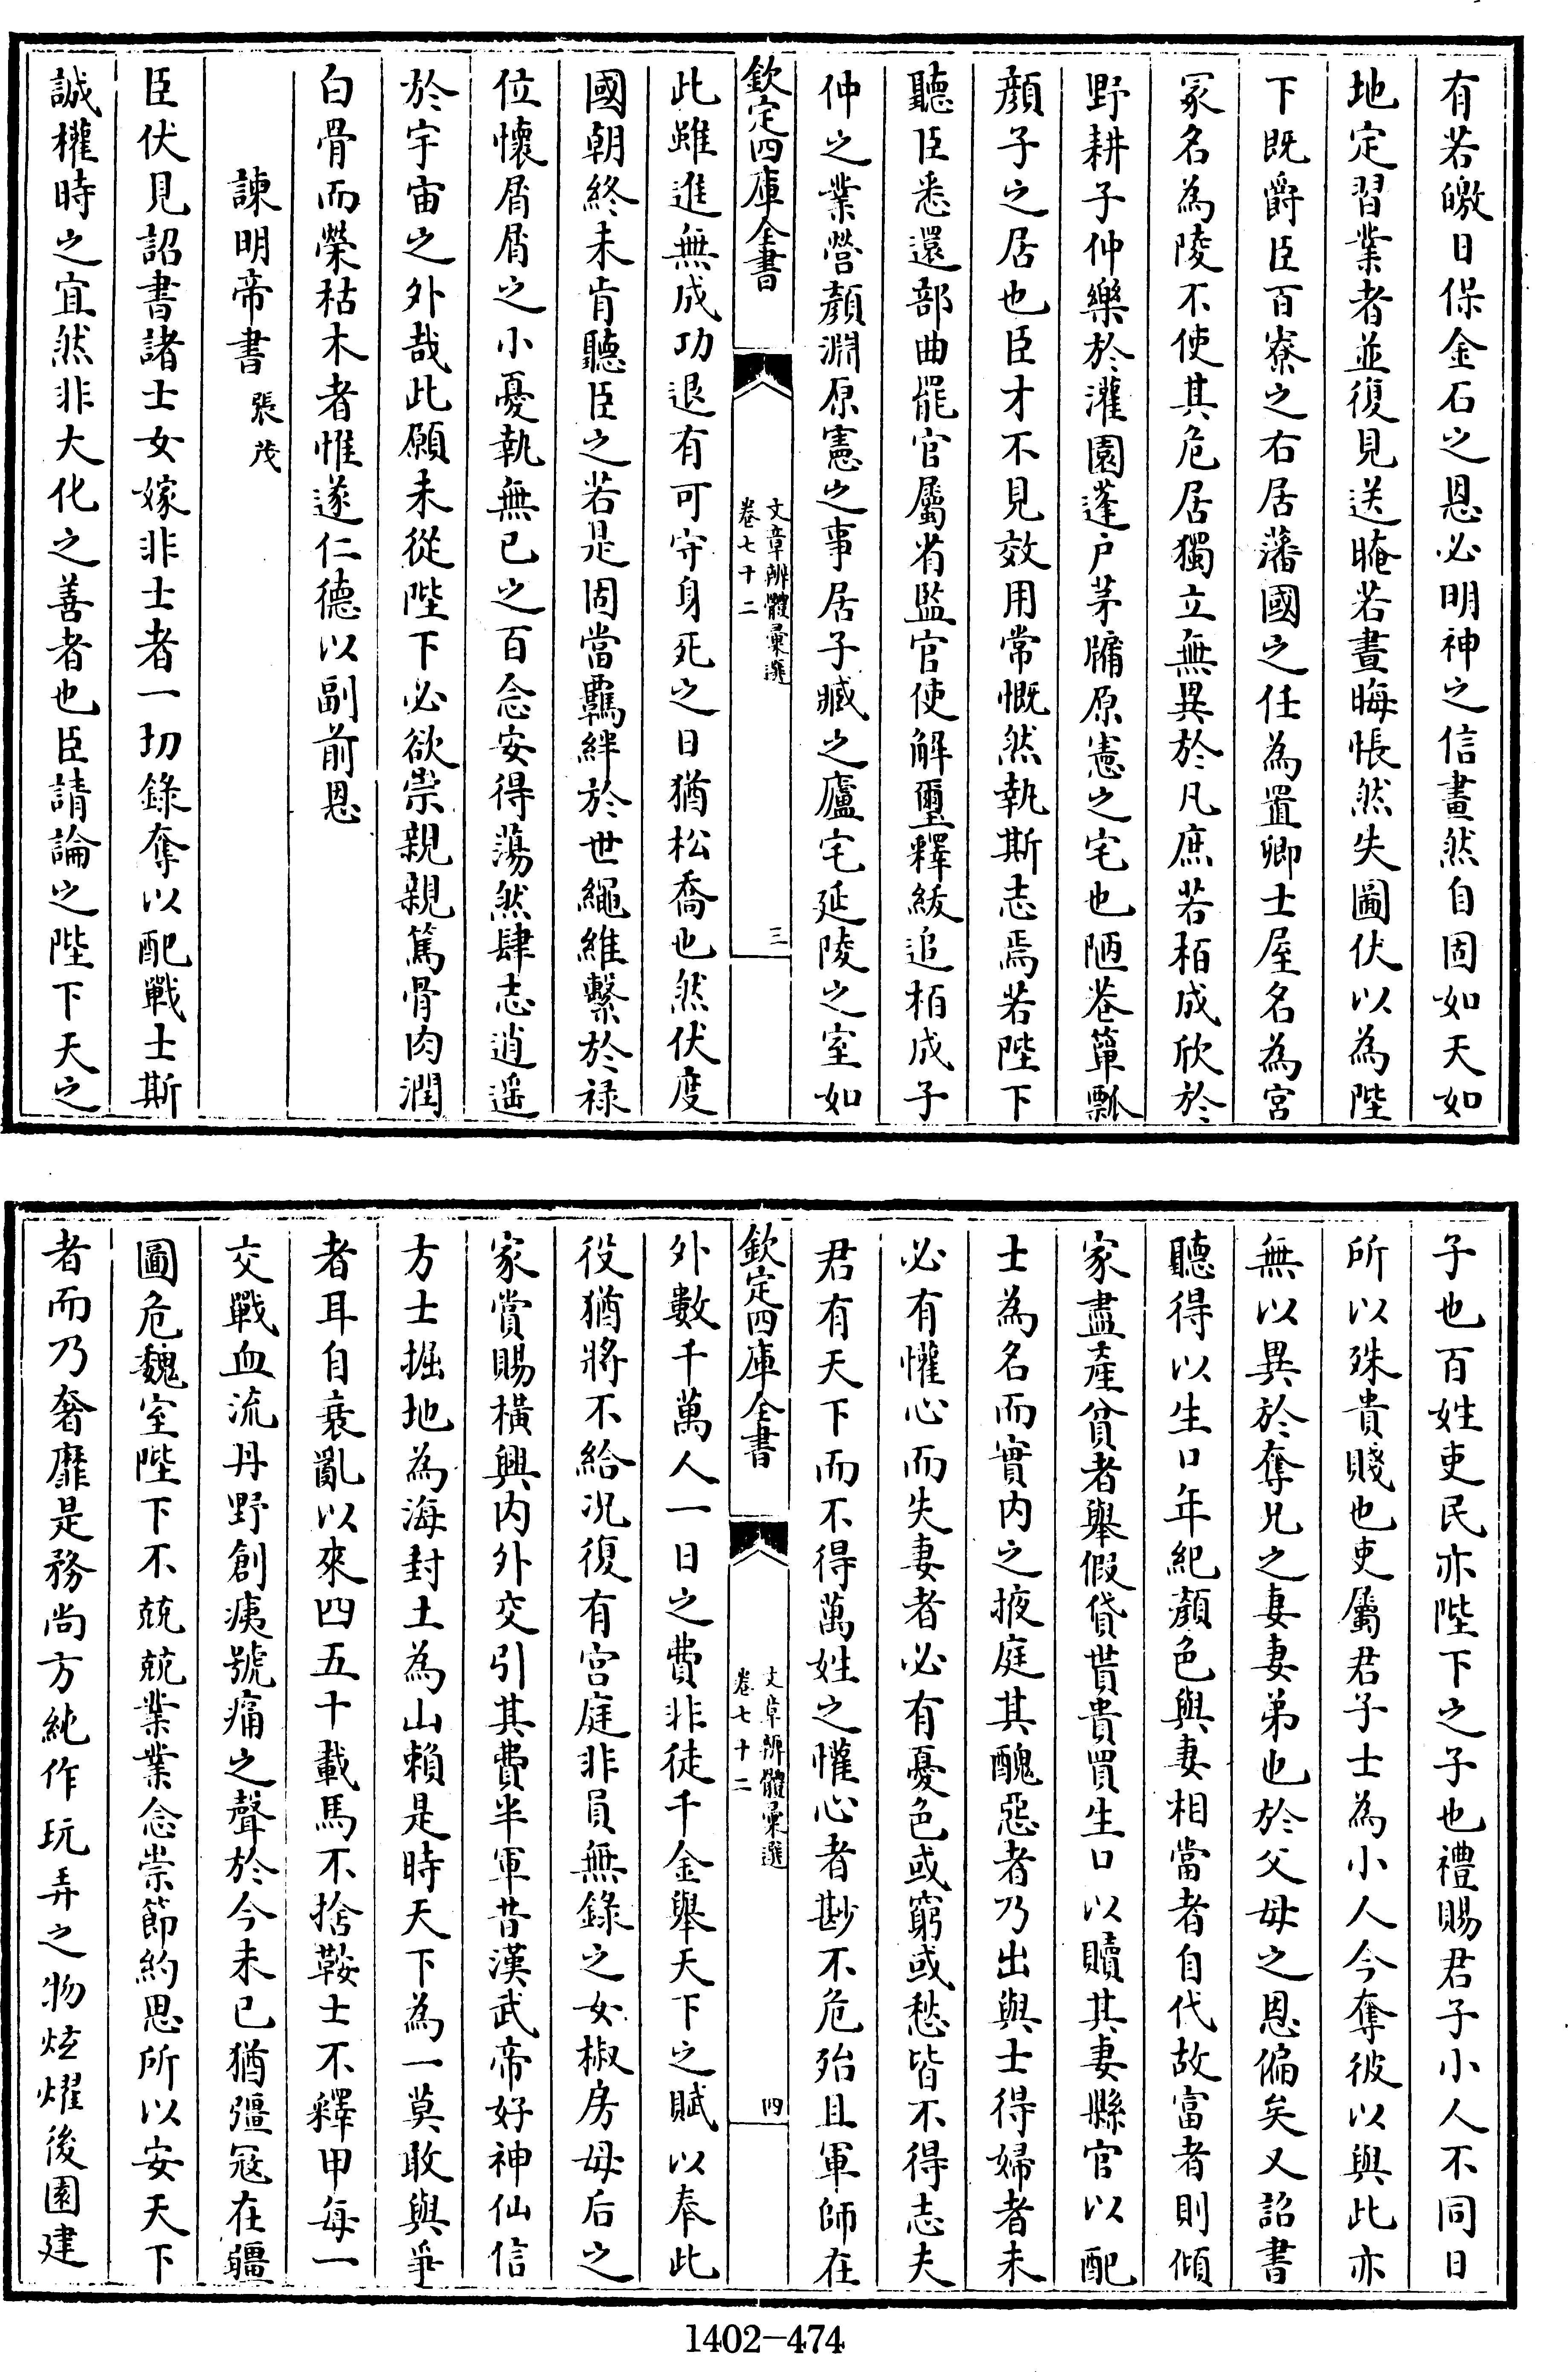 有若皦日保金石之恩必明神之信畫然自固如天如
地定習業者並復見送晻若晝晦悵然失圖伏以為陛
下既爵臣百寮之右居藩國之任為置卿士屋名為宮
冢名為陵不使其危居獨立無異於凡庶若栢成欣於
野耕子仲樂於灌園蓬户茅牖原憲之宅也陋巷簞瓢
顔子之居也臣才不見效用常慨然執斯志焉若陛下
聽臣悉還部曲罷官屬省監官使解璽釋紱追栢成子
仲之業營顔淵原憲之事居子臧之廬宅延陵之室如
欽定四庫全書
文章辨體彙選
卷七十二
三
此雖進無成功退有可守身死之日猶松喬也然伏度
國朝終未肯聽臣之若是固當羈絆於世繩維繫於禄
位懷屑屑之小憂執無已之百念安得蕩然肆志逍遥
於宇宙之外哉此願未從陛下必欲崇親親篤骨肉潤
白骨而榮枯木者惟遂仁德以副前恩
諫明帝書 張茂
臣伏見詔書諸士女嫁非士者一切錄奪以配戰士斯
誠權時之宜然非大化之善者也臣請論之陛下天之
子也百姓吏民亦陛下之子也禮賜君子小人不同日
所以殊貴賤也吏屬君子士為小人今奪彼以與此亦
無以異於奪兄之妻妻弟也於父母之恩偏矣又詔書
聽得以生口年紀顔色與妻相當者自代故富者則傾
家盡產貧者舉假貸貰貴買生口以贖其妻縣官以配
士為名而實内之掖庭其醜惡者乃出與士得婦者未
必有懽心而失妻者必有憂色或窮或愁皆不得志夫
君有天下而不得萬姓之懽心者尠不危殆且軍師在
欽定四庫全書
文章辨體彙選
卷七十二
四
外數千萬人一日之費非徒千金舉天下之賦以奉此
役猶將不給况復有宫庭非員無錄之女椒房母后之
家賞賜横興内外交引其費半軍昔漢武帝好神仙信
方士掘地為海封土為山賴是時天下為一莫敢與爭
者耳自衰亂以來四五十載馬不捨鞍士不釋甲每一
交戰血流丹野創痍號痛之聲於今未已猶彊冦在疆
圖危魏室陛下不兢兢業業念崇節約思所以安天下
者而乃奢靡是務尚方純作玩弄之物炫燿後園建
1402-474